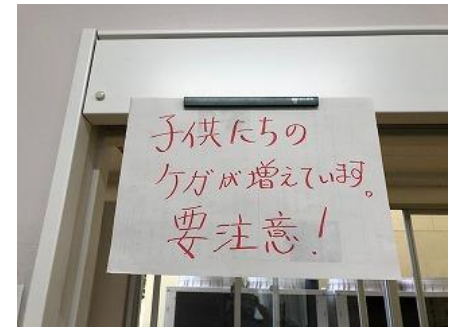 子供たちの
ケガが増えています。
要注意！